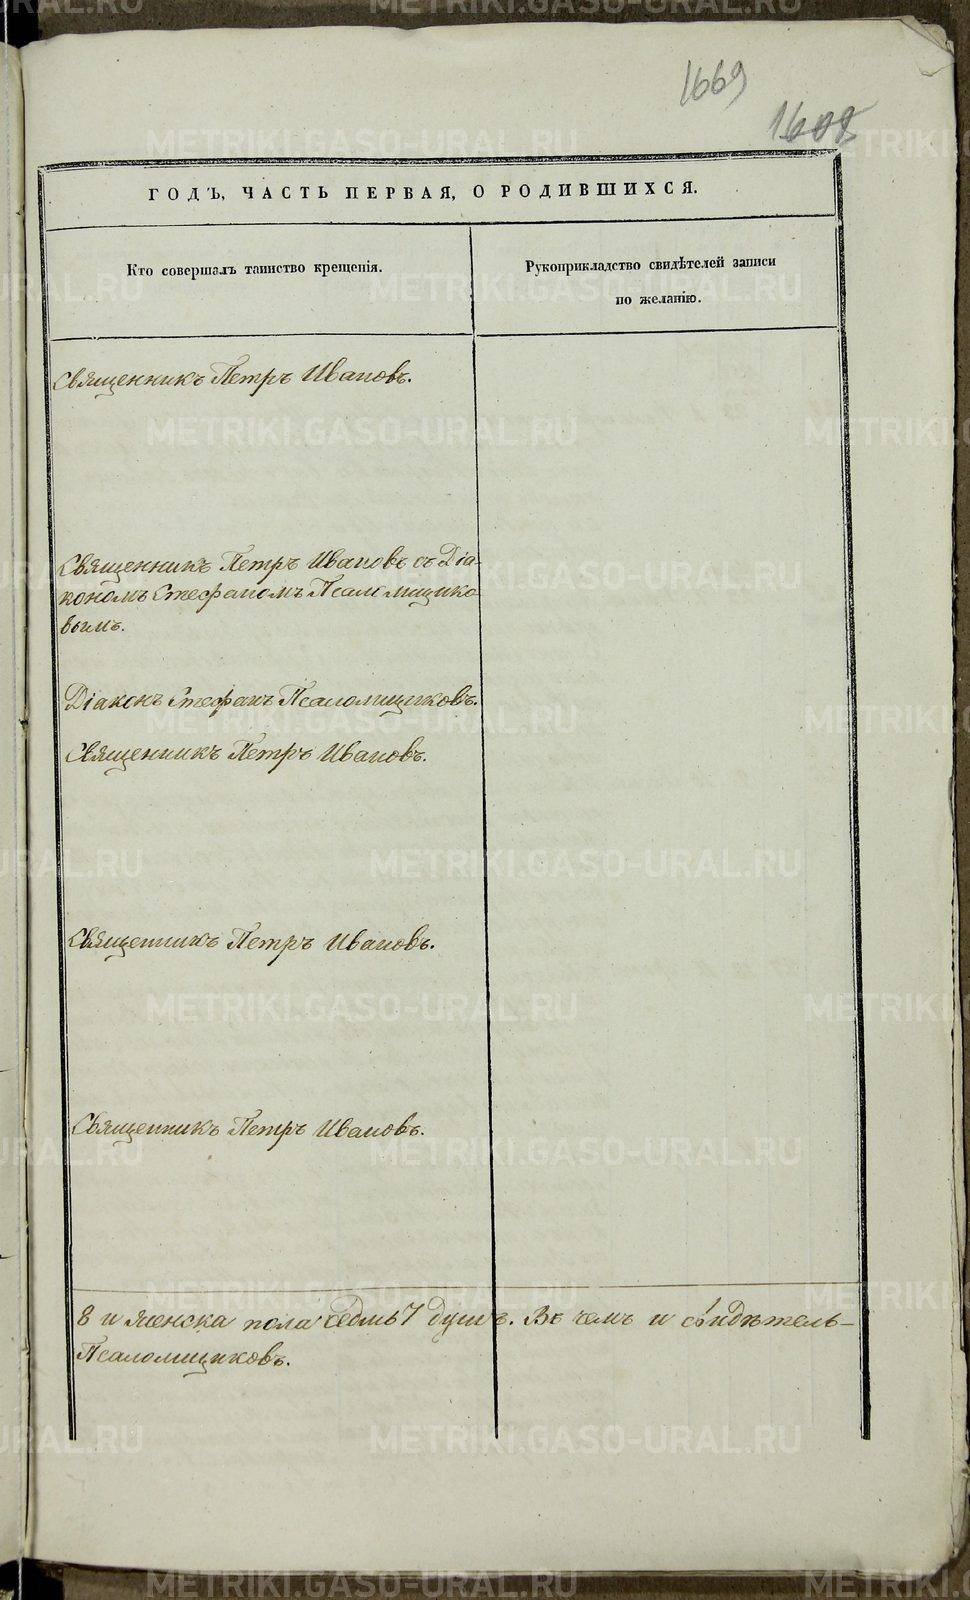 1669
1602
ГОДЪ, ЧАСТЬ ПЕРВАЯ, О РОДИВШИХСЯ.
Кто совершалъ таинство крещенія.
Рукоприкладство свидѣтелей записи
по желанію.
Священникъ Петръ Ивановъ.
Священникъ Петръ Ивановъ съ Діа-
кономъ Стефаномъ Псаломщико
вымъ.
Діаконъ Стефанъ Псаломщиковъ.
Священникъ Петръ Ивановъ.
Священникъ Петръ Ивановъ.
Священникъ Петръ Ивановъ.
8 и женска пола седмь 7 душъ. Въ чемъ и свидѣтель-
Псаломщиковъ.
METRIKI.GASO-URAL.RU